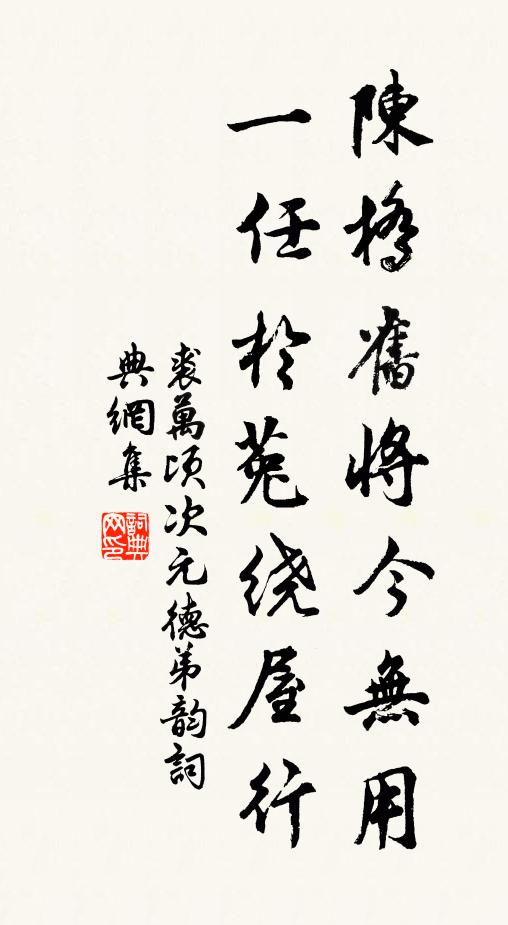 陳橋舊將今無用
一任於菟繞屋行
裘萬頃次元德弟韵詞
典網集
詞典
网印